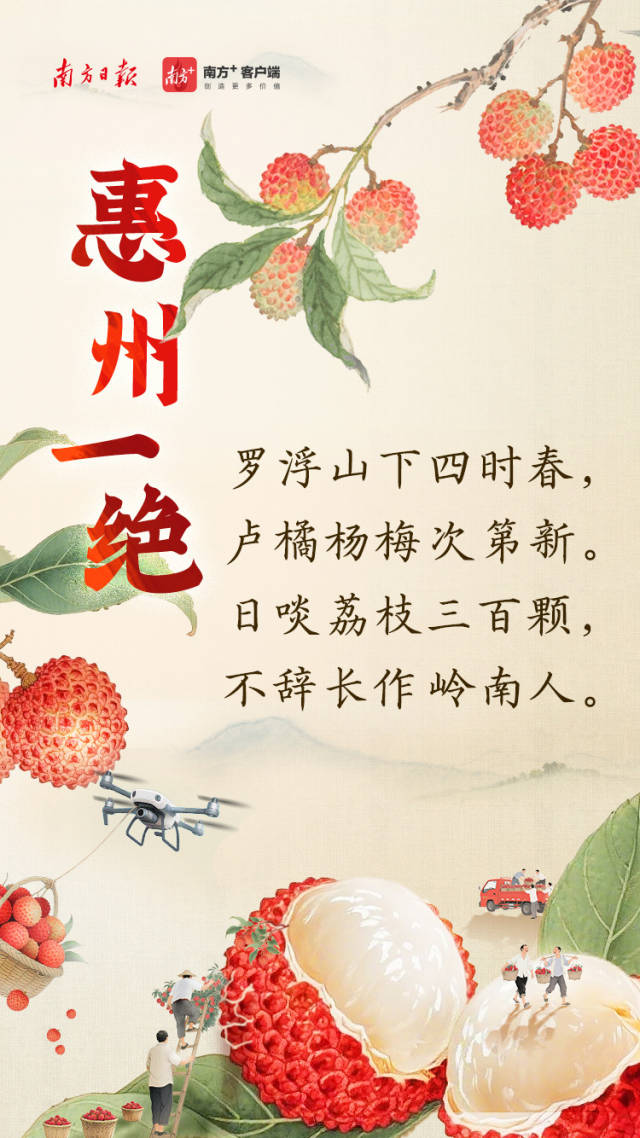 南方日报
南方+
南方+ 客户端
创造更多价值
惠州一绝
罗浮山下四时春，
卢橘杨梅次第新。
日啖荔枝三百颗，
不辞长作岭南人。